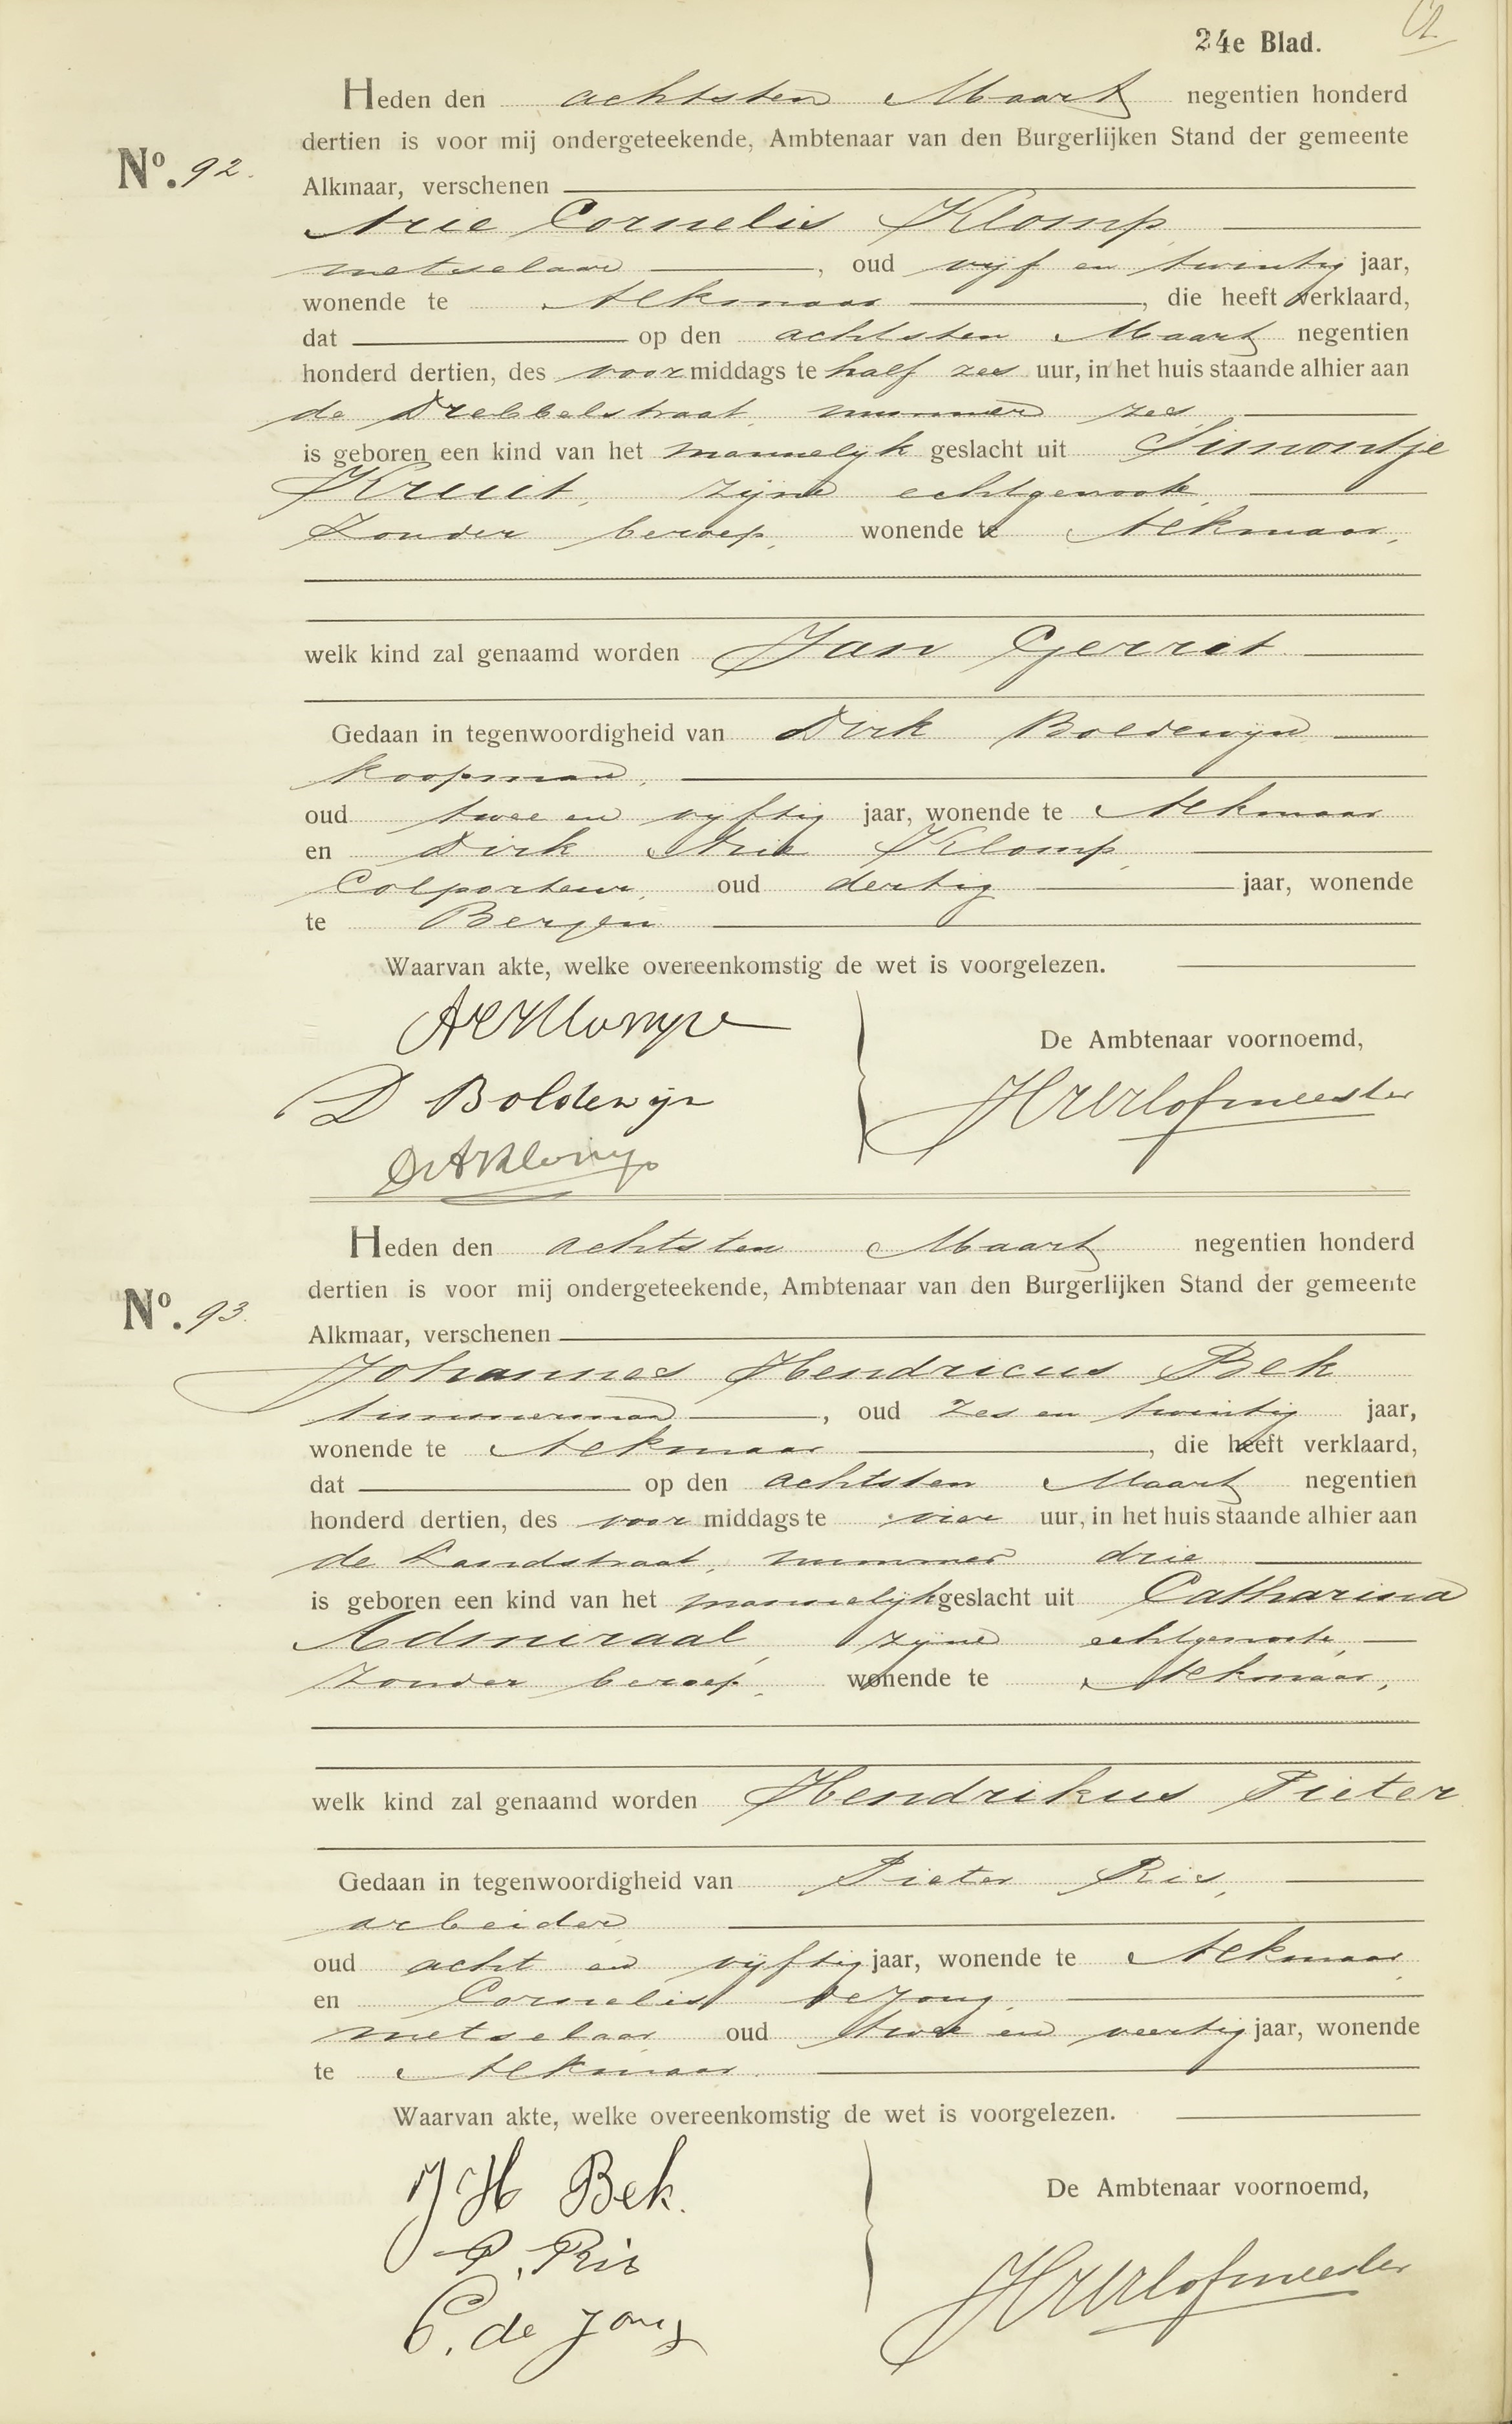 24e Blad.
Heden den achtsten Maart negentien honderd
dertien is voor mij ondergeteekende, Ambtenaar van den Burgerlijken Stand der gemeente
No. 92.
Alkmaar, verschenen
Arie Cornelis Klomp
metselaar, oud vijf en twintig jaar,
wonende te Alkmaar, die heeft verklaard,
dat op den achtsten Maart negentien
honderd dertien, des voormiddags te half zes uur, in het huis staande alhier aan
de Drebbelstraat, nummer zes
is geboren een kind van het mannelijk geslacht uit Simontje
Kruit, zijne echtgenoote,
zonder beroep, wonende te Alkmaar,
welk kind zal genaamd worden Jan Gerrit
Gedaan in tegenwoordigheid van Dirk Boldewijn
koopman,
oud twee en vijftig jaar, wonende te Alkmaar
en Dirk Arie Klomp,
Colporteur, oud dertig jaar, wonende
te Bergen
Waarvan akte, welke overeenkomstig de wet is voorgelezen.
AC Klomp
De Ambtenaar voornoemd,
D Boldewijn
Hofmeester
DA Klomp
Heden den achtsten Maart negentien honderd
dertien is voor mij ondergeteekende, Ambtenaar van den Burgerlijken Stand der gemeente
No. 93.
Alkmaar, verschenen
Johannes Hendricus Bek
timmerman, oud zes en twintig jaar,
wonende te Alkmaar, die heeft verklaard,
dat op den achtsten Maart negentien
honderd dertien, des voormiddags te vier uur, in het huis staande alhier aan
de Landstraat, nummer drie
is geboren een kind van het mannelijk geslacht uit Catharina
Admiraal, zijne echtgenoote,
zonder beroep, wonende te Alkmaar,
welk kind zal genaamd worden Hendrikus Pieter
Gedaan in tegenwoordigheid van Pieter Ris,
arbeider
oud acht en vijftig jaar, wonende te Alkmaar
en Cornelis de Jong,
metselaar oud twee en veertig jaar, wonende
te Alkmaar
Waarvan akte, welke overeenkomstig de wet is voorgelezen.
J H Bek.
De Ambtenaar voornoemd,
P. Ris
Hofmeester
C. de Jong